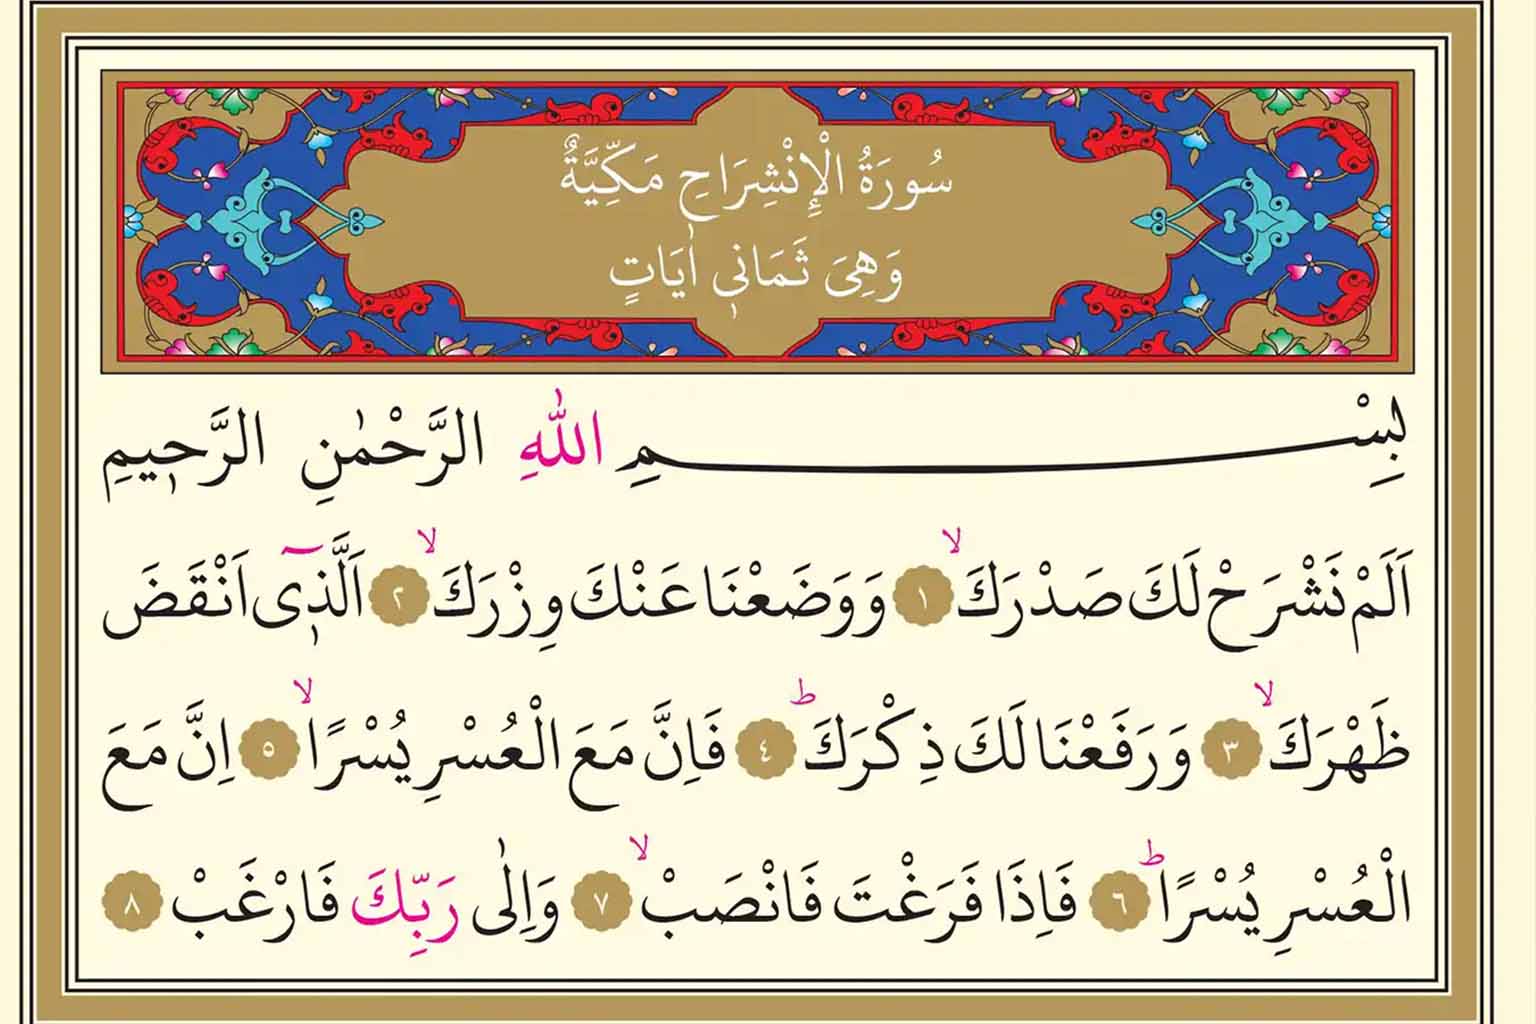 سُورَةُ الْاِنْشِرَاحِ مَكِّيَّةٌ
وَهِىَ ثَمَانٖى اٰيَاتٍ
بِسْمِ اللّٰهِ الرَّحْمٰنِ الرَّحٖيمِ
اَلَمْ نَشْرَحْ لَكَ صَدْرَكَۙ ١ وَوَضَعْنَا عَنْكَ وِزْرَكَۙ ٢ اَلَّذٖٓى اَنْقَضَ
ظَهْرَكَۙ ٣ وَرَفَعْنَا لَكَ ذِكْرَكَؕ ٤ فَاِنَّ مَعَ الْعُسْرِ يُسْرًاۙ ٥ اِنَّ مَعَ
الْعُسْرِ يُسْرًاؕ ٦ فَاِذَا فَرَغْتَ فَانْصَبْۙ ٧ وَاِلٰى رَبِّكَ فَارْغَبْ ٨